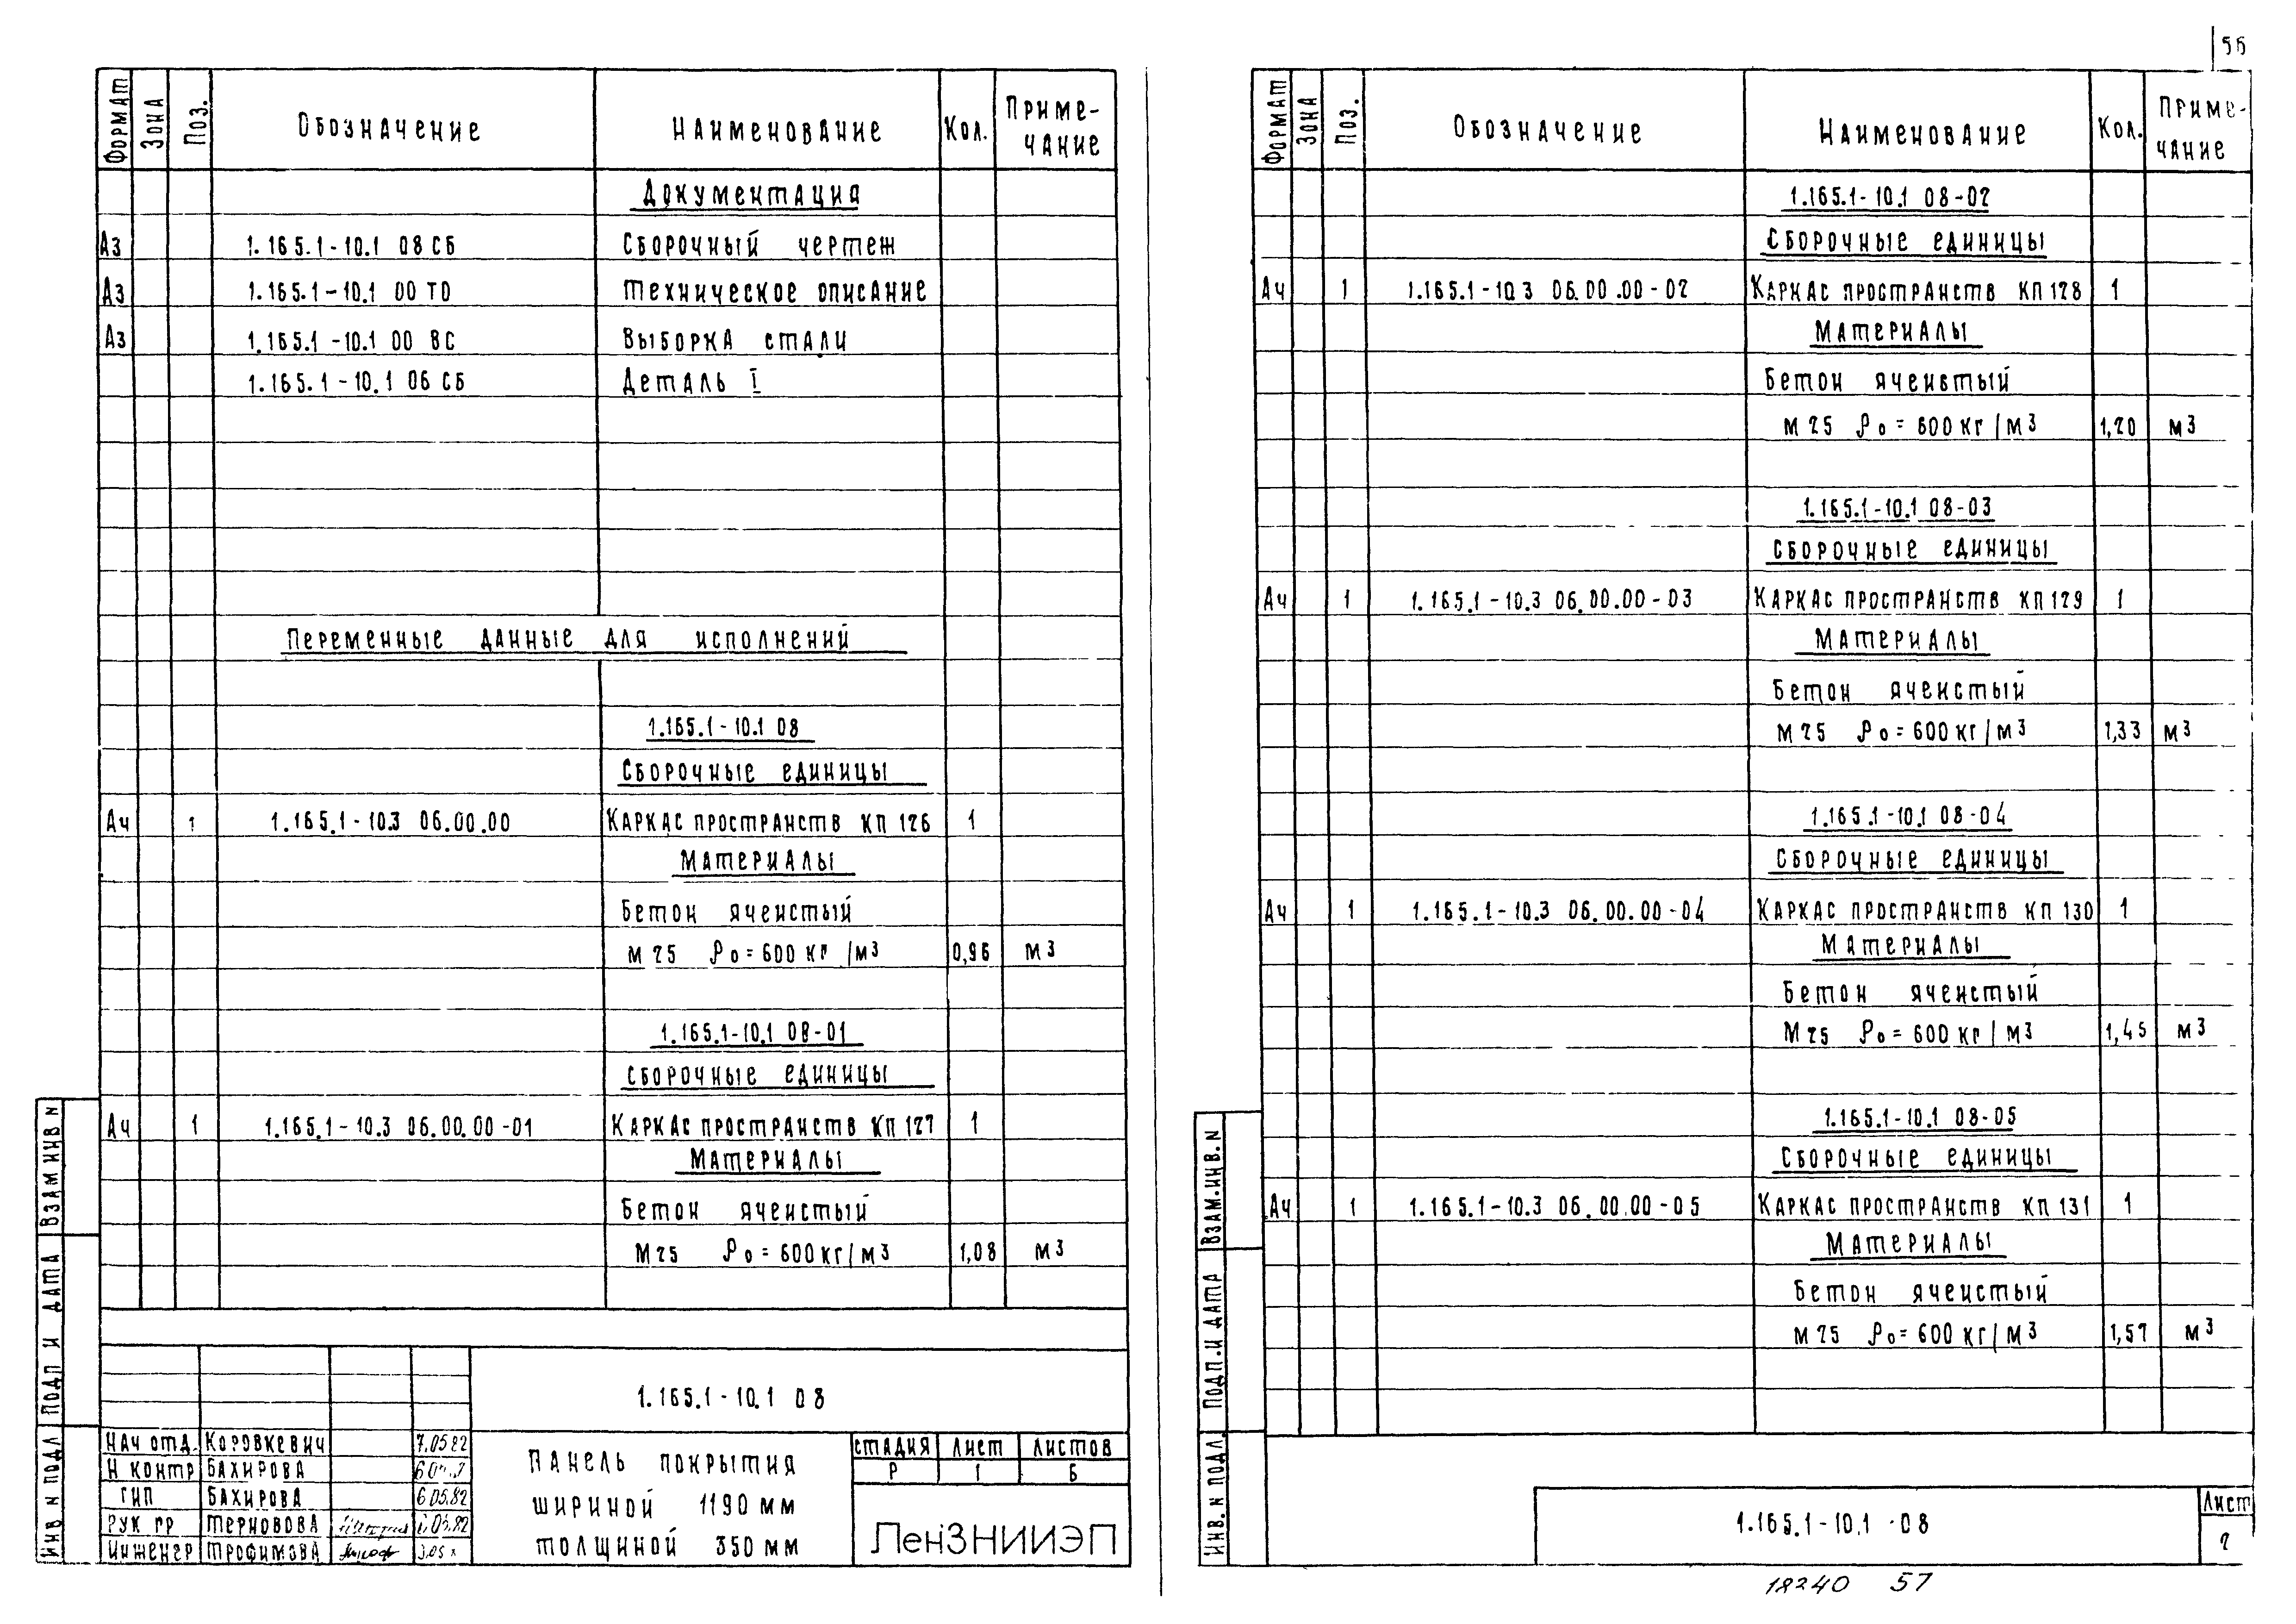 56
Формат Зона Поз. Обозначение Наименование Кол. Приме-
чание
Документация
А3 1.165.1-10.1 08 СБ Сборочный чертеж
А3 1.165.1-10.1 00 ТО Техническое описание
А3 1.165.1-10.1 00 ВС Выборка стали
1.165.1-10.1 06 СБ Деталь I
Переменные данные для исполнений
1.165.1-10.1 08
Сборочные единицы
А4 1 1.165.1-10.3 06.00.00 Каркас пространств КП 126 1
Материалы
Бетон ячеистый
М 25 ρо=600 кг/м3 0,96 м3
1.165.1-10.1 08-01
Сборочные единицы
А4 1 1.165.1-10.3 06.00.00-01 Каркас пространств КП 127 1
Материалы
Бетон ячеистый
М25 ρо=600 кг/м3 1,08 м3
1.165.1-10.1 08
Нач отд. Коровкевич 7.05.82
Н контр Бахирова
ГИП Бахирова 6.05.82
Рук гр Терновова
Инженер Трофимова
Панель покрытия
шириной 1190 мм
толщиной 350 мм
стадия Лист Листов
Р 1 6
ЛенЗНИИЭП
Взам инв N
Подп и дата
Инв N подл
Формат Зона Поз. Обозначение Наименование Кол. Приме-
чание
1.165.1-10.1 08-02
Сборочные единицы
А4 1 1.165.1-10.3 06.00.00-02 Каркас пространств КП 128 1
Материалы
Бетон ячеистый
М 25 ρо=600 кг/м3 1,20 м3
1.165.1-10.1 08-03
Сборочные единицы
А4 1 1.165.1-10.3 06.00.00-03 Каркас пространств КП 129 1
Материалы
Бетон ячеистый
М 25 ρо=600 кг/м3 1,33 м3
1.165.1-10.1 08-04
Сборочные единицы
А4 1 1.165.1-10.3 06.00.00-04 Каркас пространств КП 130 1
Материалы
Бетон ячеистый
М 25 ρо=600 кг/м3 1,45 м3
1.165.1-10.1 08-05
Сборочные единицы
А4 1 1.165.1-10.3 06.00.00-05 Каркас пространств КП 131 1
Материалы
Бетон ячеистый
М 25 ρо=600 кг/м3 1,57 м3
Взам.инв. N
Подп.и дата
Инв. N подл.
1.165.1-10.1 08
Лист
2
18240 57